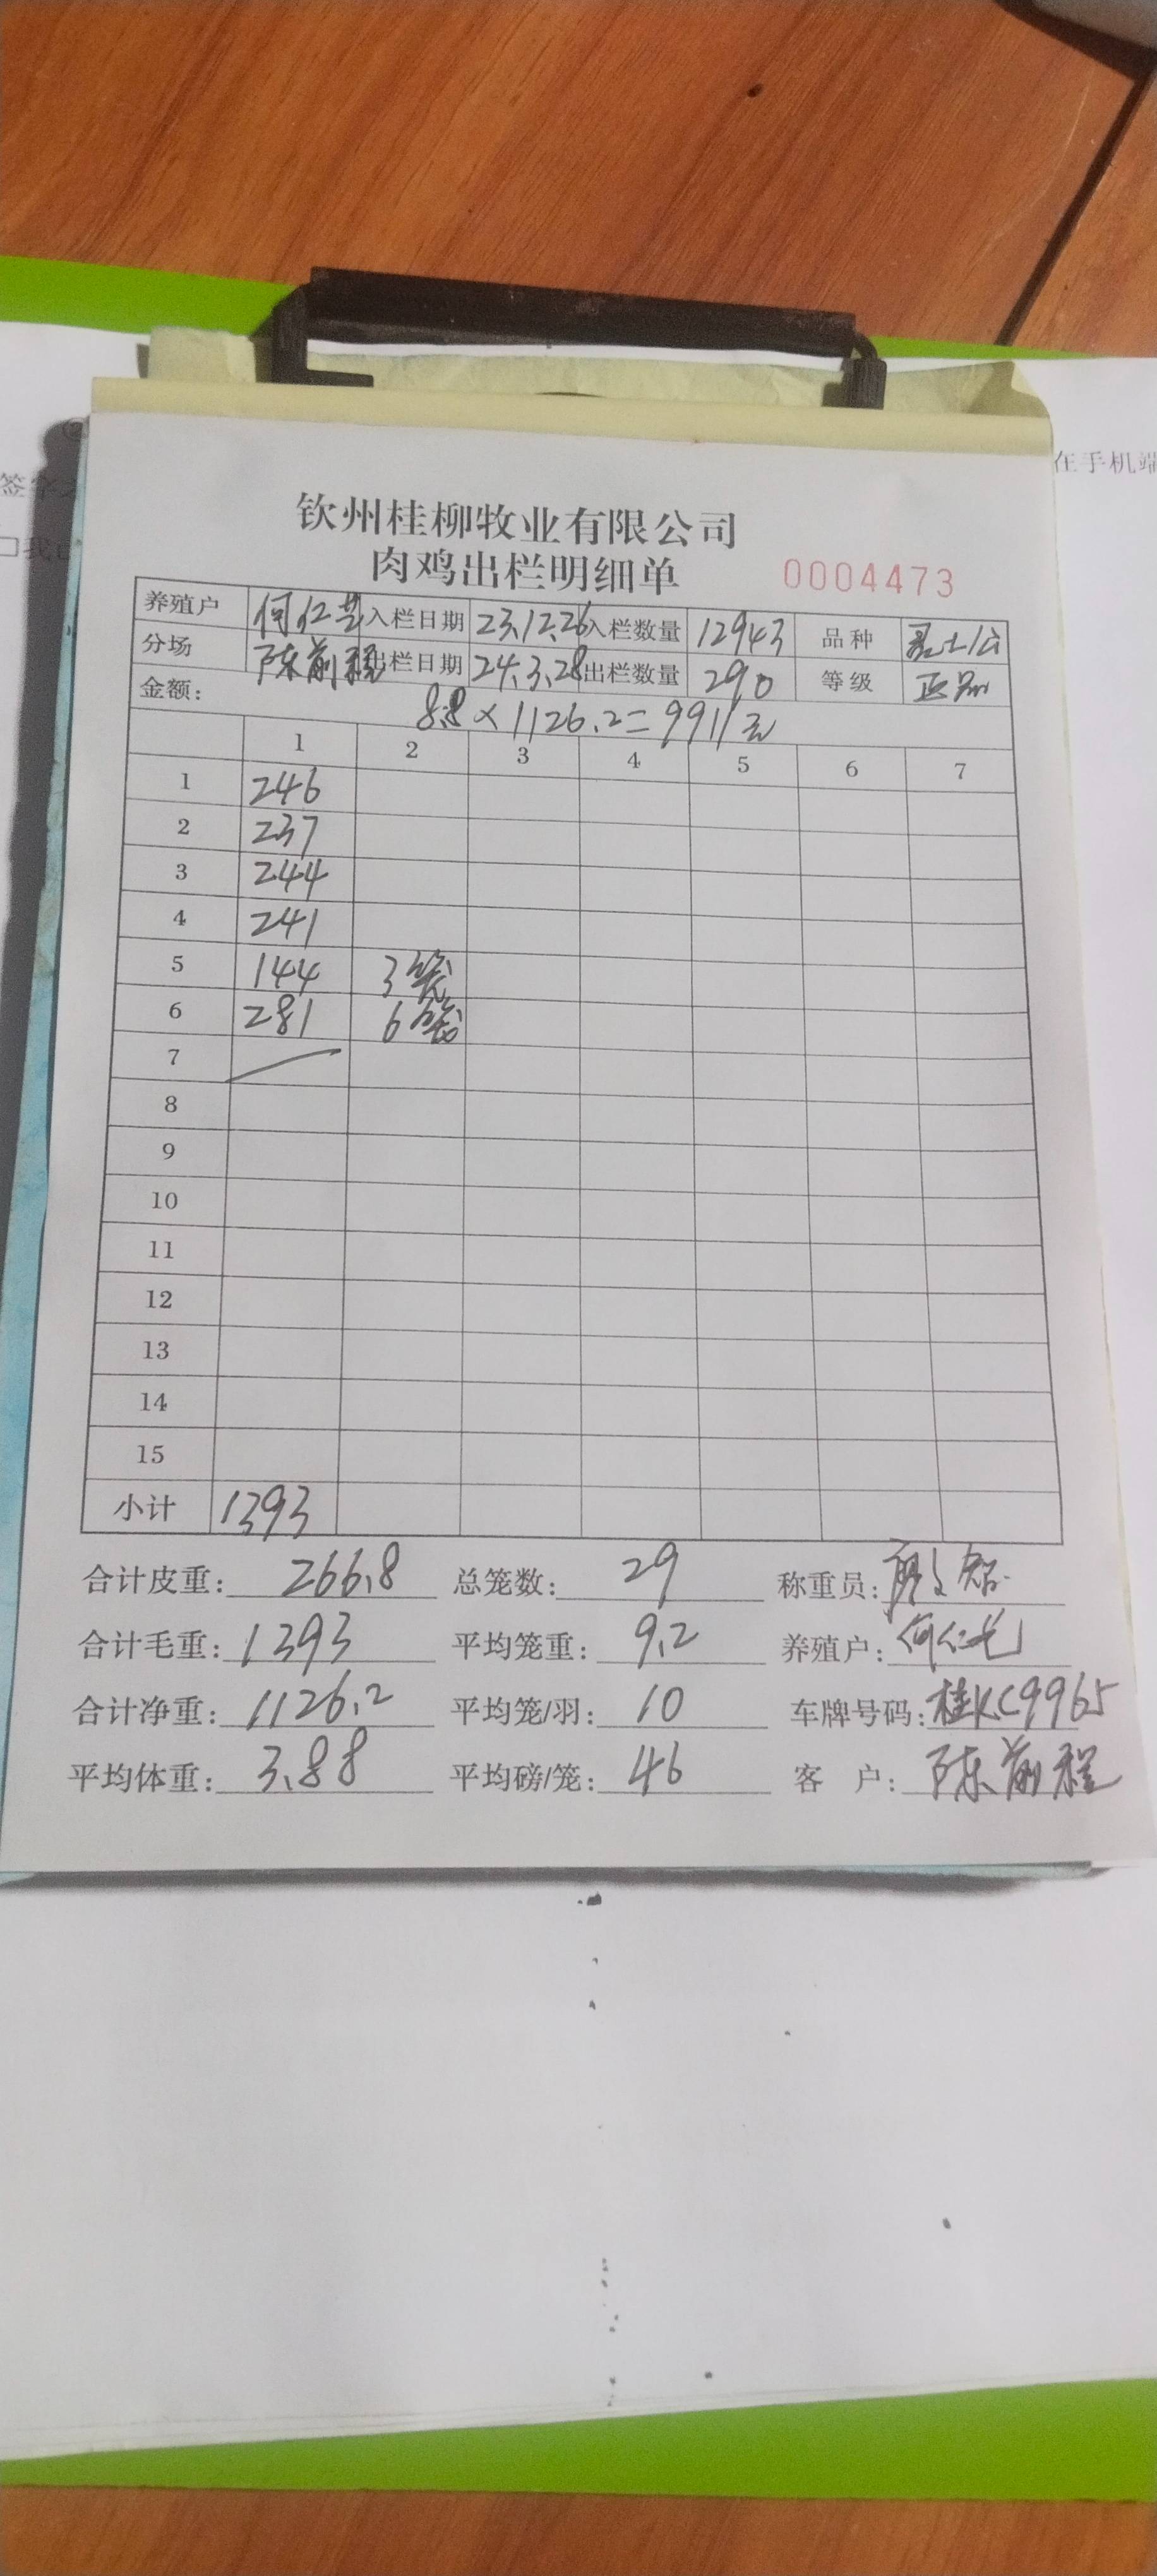 在手机端
签字
钦州桂柳牧业有限公司
肉鸡出栏明细单 0004473
养殖户 何仁 入栏日期 23.12.26 入栏数量 12943 品种
分场 陈前程 出栏日期 24.3.28 出栏数量 290 等级 正
金额: 8.8×1126.2=9911元
1 2 3 4 5 6 7
1 246
2 237
3 244
4 241
5 144 3笼
6 281 6笼
7
8
9
10
11
12
13
14
15
小计 1393
合计皮重: 266.8 总笼数: 29 称重员:
合计毛重: 1393 平均笼重: 9.2 养殖户: 何仁
合计净重: 1126.2 平均笼/羽: 10 车牌号码: 桂KC9965
平均体重: 3.88 平均磅/笼: 46 客户: 陈前程